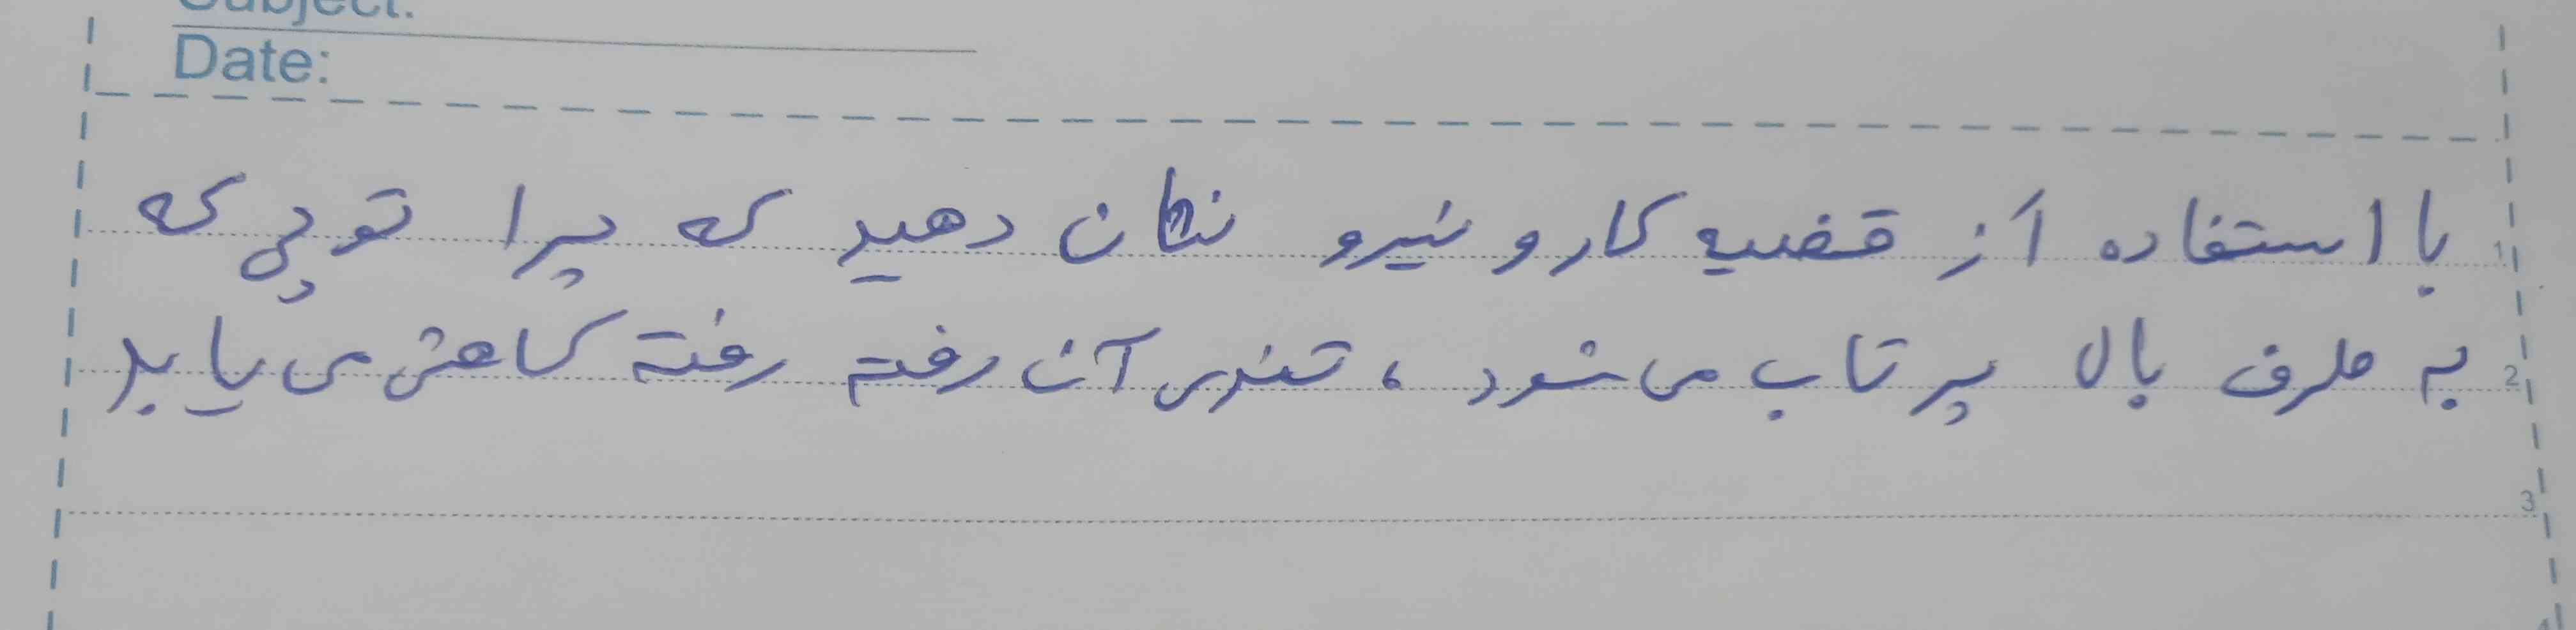 Subject:
Date:
با استفاده از قضیه کار و نیرو نشان دهید که چرا توپی که
به طرف بالا پرتاب می شود، تندی آن رفته رفته کاهش می یابد
1
2
3